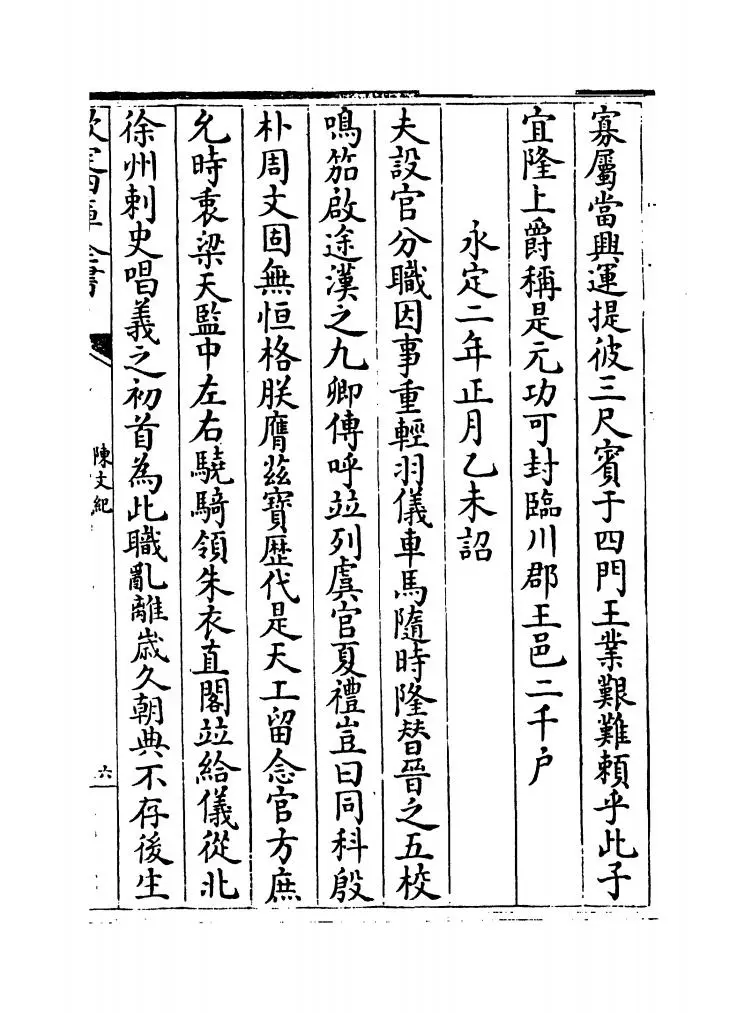 寡屬當興運提彼三尺賓于四門王業艱難頼乎此子
宜隆上爵稱是元功可封臨川郡王邑二千户
永定二年正月乙未詔
夫設官分職因事重輕羽儀車馬隨時隆替晉之五校
鳴笳啟途漢之九卿傳呼竝列虞官夏禮豈曰同科殷
朴周文固無恒格朕膺兹寶歴代是天工留念官方庶
允時衷梁天監中左右驍騎領朱衣直閣竝給儀從北
徐州刺史唱義之初首為此職亂離歲久朝典不存後生
陳文紀
六